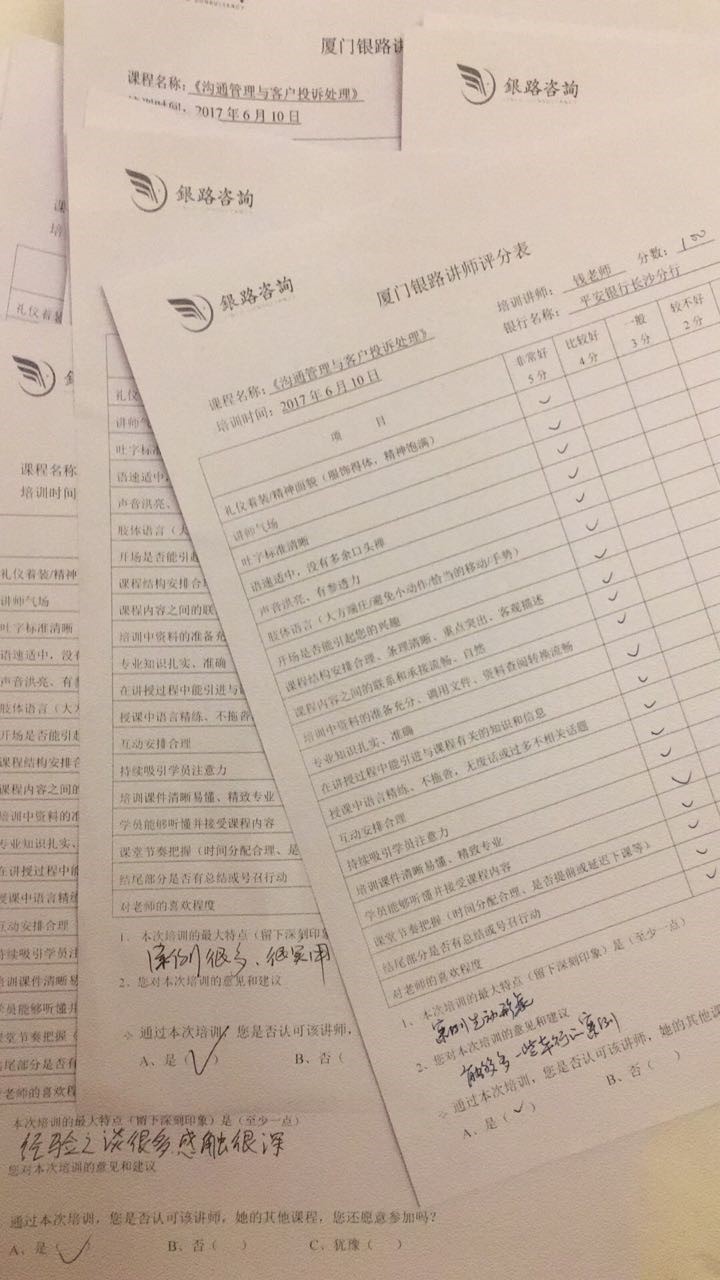 厦门银路讲
课程名称：《沟通管理与客户投诉处理》
2017年6月10日
銀路咨詢
銀路咨詢
銀路咨詢
厦门银路讲师评分表
培训讲师： 钱老师 分数：100
银行名称： 平安银行长沙分行
课程名称：《沟通管理与客户投诉处理》
培训时间：2017年6月10日
项 目
非常好 5分
比较好 4分
一般 3分
较不好 2分
礼仪着装/精神面貌（服饰得体，精神饱满）
讲师气场
吐字标准清晰
语速适中，没有多余口头禅
声音洪亮、有参透力
肢体语言（大方端庄/避免小动作/恰当的移动/手势）
开场是否能引起您的兴趣
课程结构安排合理、条理清晰、重点突出、客观描述
课程内容之间的联系和承接流畅、自然
培训中资料的准备充分、调用文件、资料查阅转换流畅
专业知识扎实、准确
在讲授过程中能引进与课程有关的知识和信息
授课中语言精练、不拖沓，无废话或过多不相关话题
互动安排合理
持续吸引学员注意力
培训课件清晰易懂、精致专业
学员能够听懂并接受课程内容
课堂节奏把握（时间分配合理、是否提前或延迟下课等）
结尾部分是否有总结或号召行动
对老师的喜欢程度
1、本次培训的最大特点（留下深刻印象）是（至少一点）
案例生动形象
2、您对本次培训的意见和建议
能够多一些本行证案例
通过本次培训，您是否认可该讲师，她的其他课
A、是（✓）
B、否（ ）
礼仪
讲师气
吐字标准
语速适中
声音洪亮、
肢体语言（大
开场是否能引起
课程结构安排合
课程内容之间的联
培训中资料的准备充
专业知识扎实、准确
在讲授过程中能引进与
授课中语言精练、不拖沓
互动安排合理
持续吸引学员注意力
培训课件清晰易懂、精致专业
学员能够听懂并接受课程内容
课堂节奏把握（时间分配合理、是
结尾部分是否有总结或号召行动
对老师的喜欢程度
1、本次培训的最大特点（留下深刻印象
案例很多、很实用
2、您对本次培训的意见和建议
通过本次培训，您是否认可该讲师，
A、是（✓）
B、否（
礼仪着装
课程名称
培训时间
礼仪着装/精神
讲师气场
吐字标准清晰
语速适中，没有
声音洪亮、有参
肢体语言（大方
开场是否能引起
课程结构安排合
课程内容之间的
培训中资料的准
专业知识扎实、
在讲授过程中能
授课中语言精练
互动安排合理
持续吸引学员注
培训课件清晰易
学员能够听懂并
课堂节奏把握（
结尾部分是否有
对老师的喜欢程
本次培训的最大特点（留下深刻印象）是（至少一点）
经验之谈很多，感触很深
您对本次培训的意见和建议
通过本次培训，您是否认可该讲师，她的其他课程，您还愿意参加吗？
A、是（✓）
B、否（ ）
C、犹豫（ ）